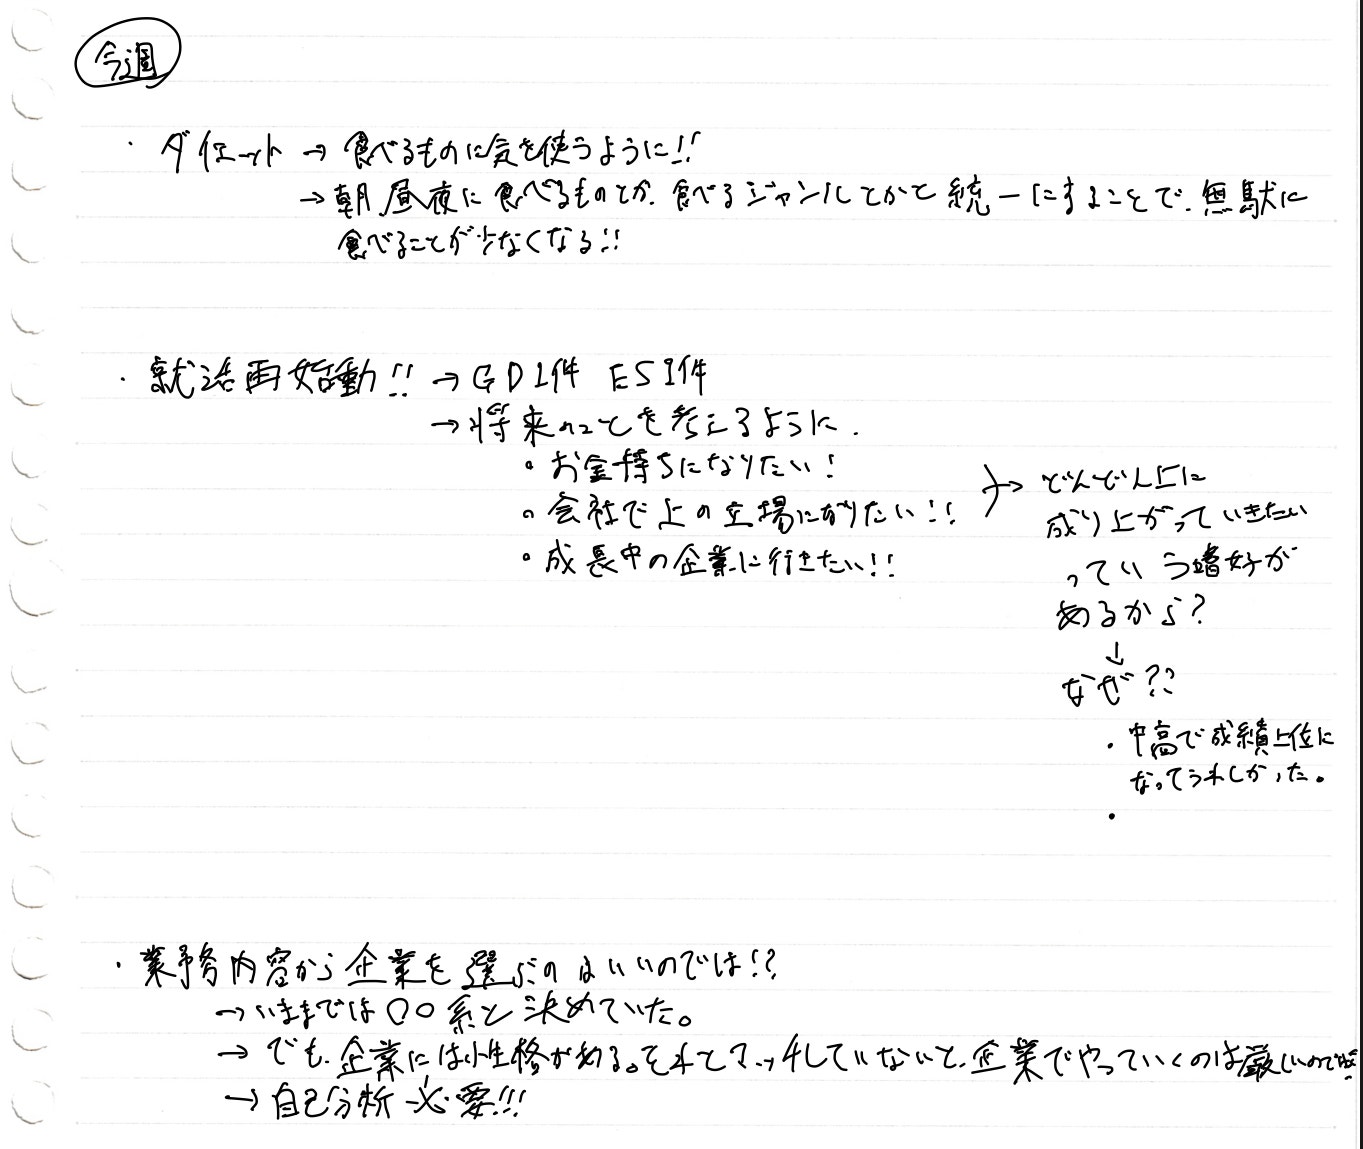 今週
・ダイエット → 食べるものに気を使うように!!
→ 朝、昼、夜に食べるものとか、食べるジャンルとかを統一にすることで、無駄に
食べることが少なくなる!!
・就活再始動!! → GD1件 ES1件
→ 将来のことを考えるように.
。お金持ちになりたい!
。会社で上の立場になりたい!!
。成長中の企業に行きたい!!
→ どんどん上に
成り上がっていきたい
っていう嗜好が
あるから?
↓
なぜ??
・中高で成績上位に
なってうれしかった。
・
・業務内容から企業を選ぶのはいいのでは!?
→ いままでは〇〇系と決めていた。
→ でも、企業には性格がある。それとマッチしていないと、企業でやっていくのは厳しいのでは
→ 自己分析必要!!!